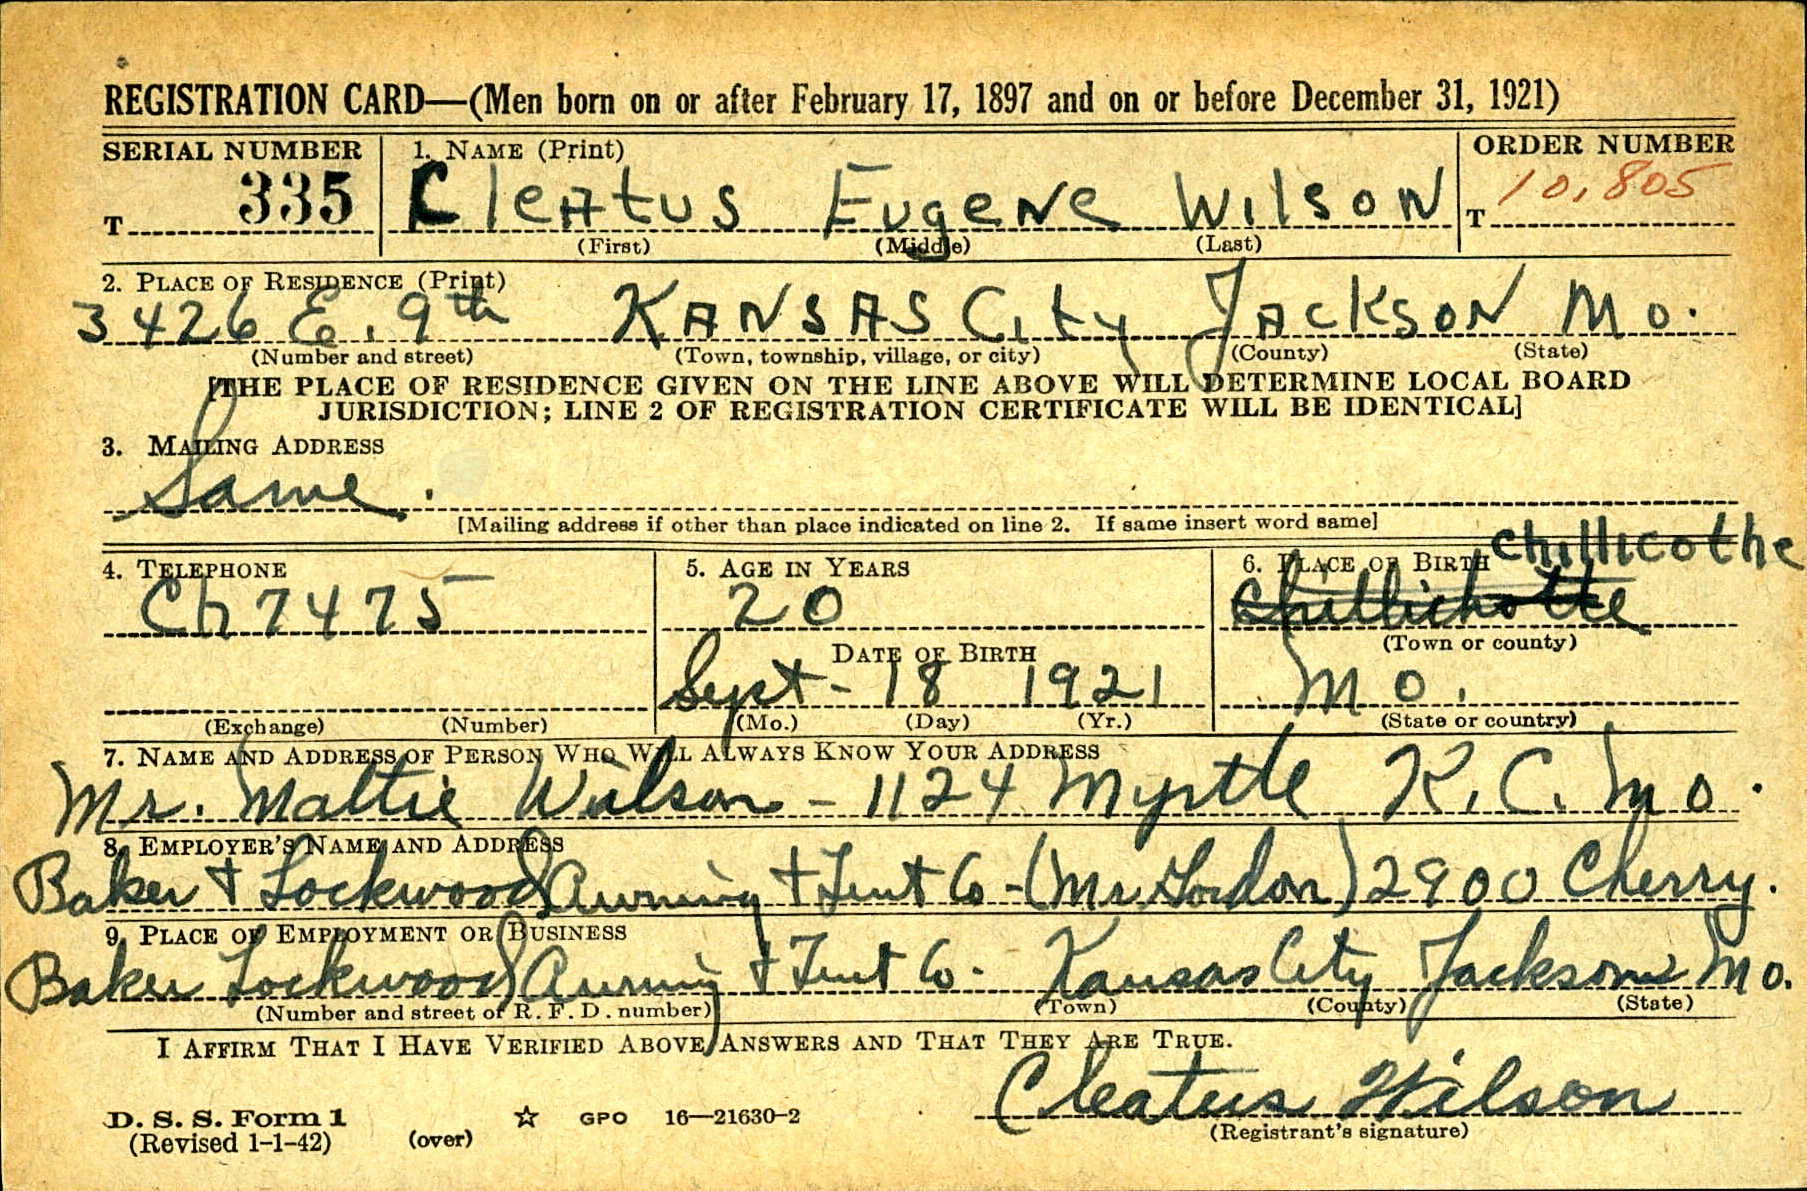 REGISTRATION CARD—(Men born on or after February 17, 1897 and on or before December 31, 1921)
SERIAL NUMBER 1. NAME (Print) ORDER NUMBER
T 335 Cleatus Eugene Wilson T 10,805
(First) (Middle) (Last)
2. PLACE OF RESIDENCE (Print)
3426 E. 9th Kansas City Jackson Mo.
(Number and street) (Town, township, village, or city) (County) (State)
[THE PLACE OF RESIDENCE GIVEN ON THE LINE ABOVE WILL DETERMINE LOCAL BOARD
JURISDICTION; LINE 2 OF REGISTRATION CERTIFICATE WILL BE IDENTICAL]
3. MAILING ADDRESS
Same.
[Mailing address if other than place indicated on line 2. If same insert word same]
4. TELEPHONE 5. AGE IN YEARS 6. PLACE OF BIRTH Chillicothe
Ch 7475 20 Chillichotte
(Town or county)
DATE OF BIRTH
Sept - 18 1921 Mo.
(Exchange) (Number) (Mo.) (Day) (Yr.) (State or country)
7. NAME AND ADDRESS OF PERSON WHO WILL ALWAYS KNOW YOUR ADDRESS
Mr. Mattie Wilson - 1124 Myrtle K.C. Mo.
8. EMPLOYER'S NAME AND ADDRESS
Baker + Lockwood Awning + Tent Co - (Mr Gordon) 2900 Cherry.
9. PLACE OF EMPLOYMENT OR BUSINESS
Baker Lockwood Awning + Tent Co. Kansas City Jackson Mo.
(Number and street or R. F. D. number) (Town) (County) (State)
I AFFIRM THAT I HAVE VERIFIED ABOVE ANSWERS AND THAT THEY ARE TRUE.
Cleatus Wilson
D. S. S. Form 1 ☆ GPO 16—21630-2
(Revised 1-1-42) (over) (Registrant's signature)